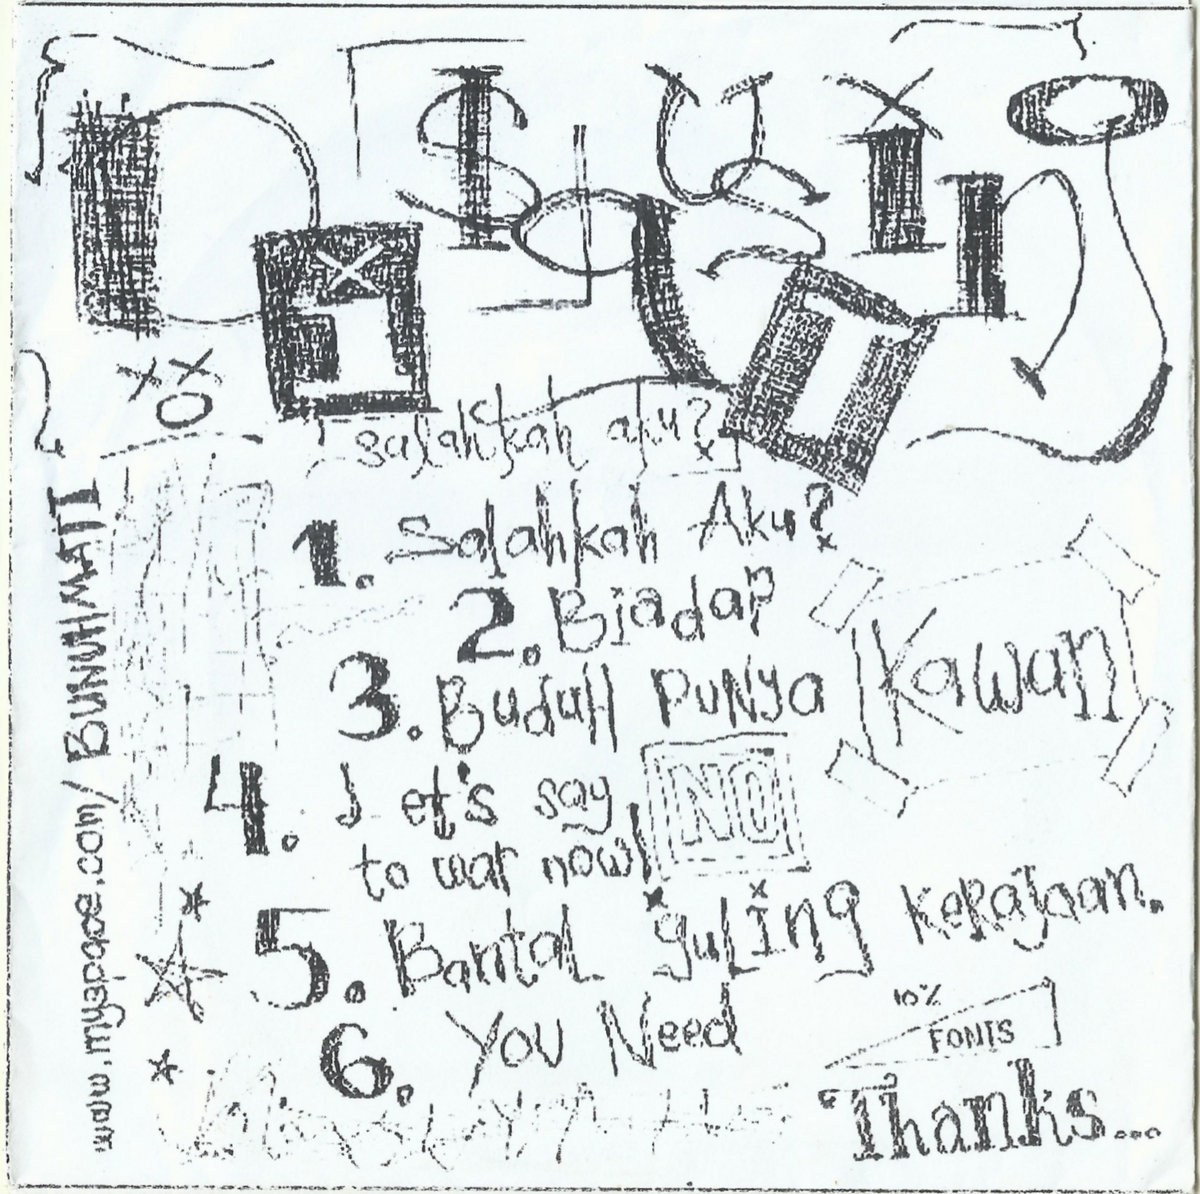 salahkah aku?
1. Salahkah Aku?
2. Biadap
3. Buduh PuNya Kawan
4. Let's say NO
to war now!
5. Bantal guling kerajaan.
6. You Need
10%
FONTS
Thanks...
www.myspace.com/BUNUHMATI